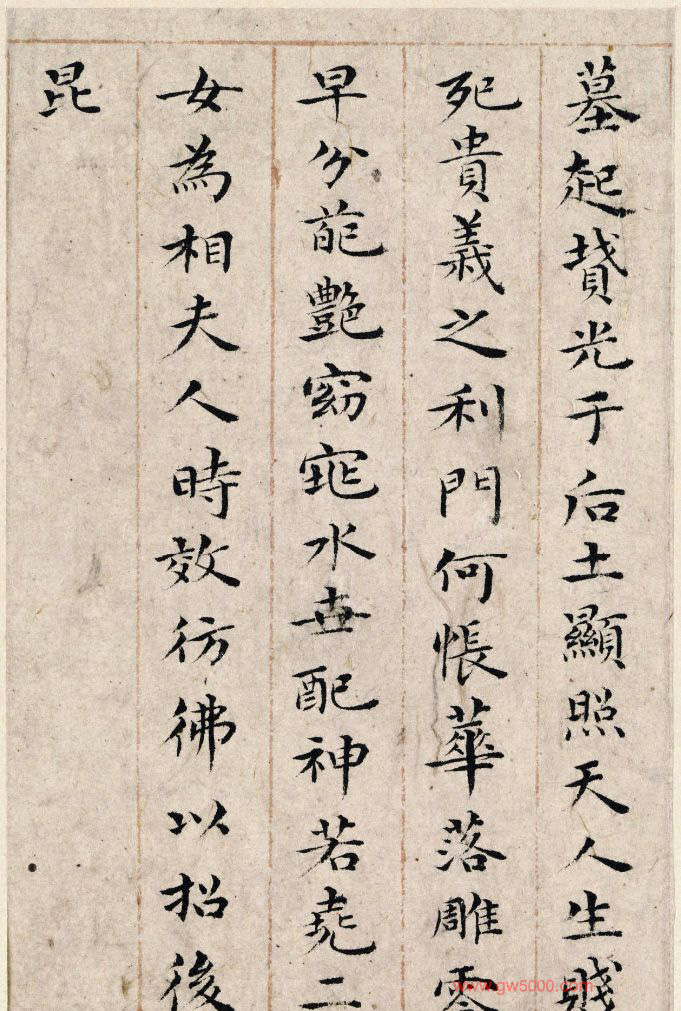 墓起墳光于后土顯照天人生賤
死貴義之利門何悵華落雕零
早分葩艷窈窕永世配神若堯二
女為相夫人時效彷彿以招後
昆
www.gw5000.com